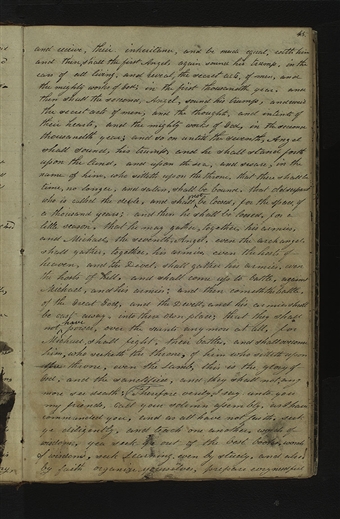 and receive, their inheritance, and be made equal, with him
and then, shall the first Angel again sound his trump, in the
ears of all living; and reveal, the secret acts, of men, and
the mighty works of God; in the first thousandth year. and
then shall the second, Angel, sound his trump, and reveal
the secret acts of men; and the thoughts, and intents of
their hearts, and the mighty works of God, in the second
thousandth year; and so on until the seventh, Angel
shall sound, his trump; and he shall stand, forth
upon the land, and upon the sea, and swear, in the
name of him, who sitteth upon the throne, that there shall be
time, no longer, and satan, shall be bound. that old serpent
who is called the devle, and shall, not be loosed, for the space, of
a thousand years; and then he shall be loosed, for a
little season. that he may gather, together, his armies,
and Michael, the seventh, Angel, even the archangel
shall gather, together, his armies even the hosts of
heaven, and the Devel shall gather his armies, even
the hosts of Hell, and shall come up to battle, against
Michael, and his armies; and then cometh the battle,
of the Great God, and the Devell, and his armies shall
be cast away, into their own place; that they shall
not have power, over the saints any more at all, for
Michael shall fight, their battles, and shall overcome
him, who seeketh the throne, of him who sitteth upon
the throne, even the Lamb, this is the glory of
God, and the sanctified, and they shall not, any
more see death; Therefore verely I say unto you
my friends, call your solemn assembly, as I have
commanded you; and as all have not faith, seek
ye diligently, and teach one another, words of
wisdom, yea seek ye out of the best books, words
of wisdom, seek learning, even by study, and also
by faith organize yourselves; prepare every needful